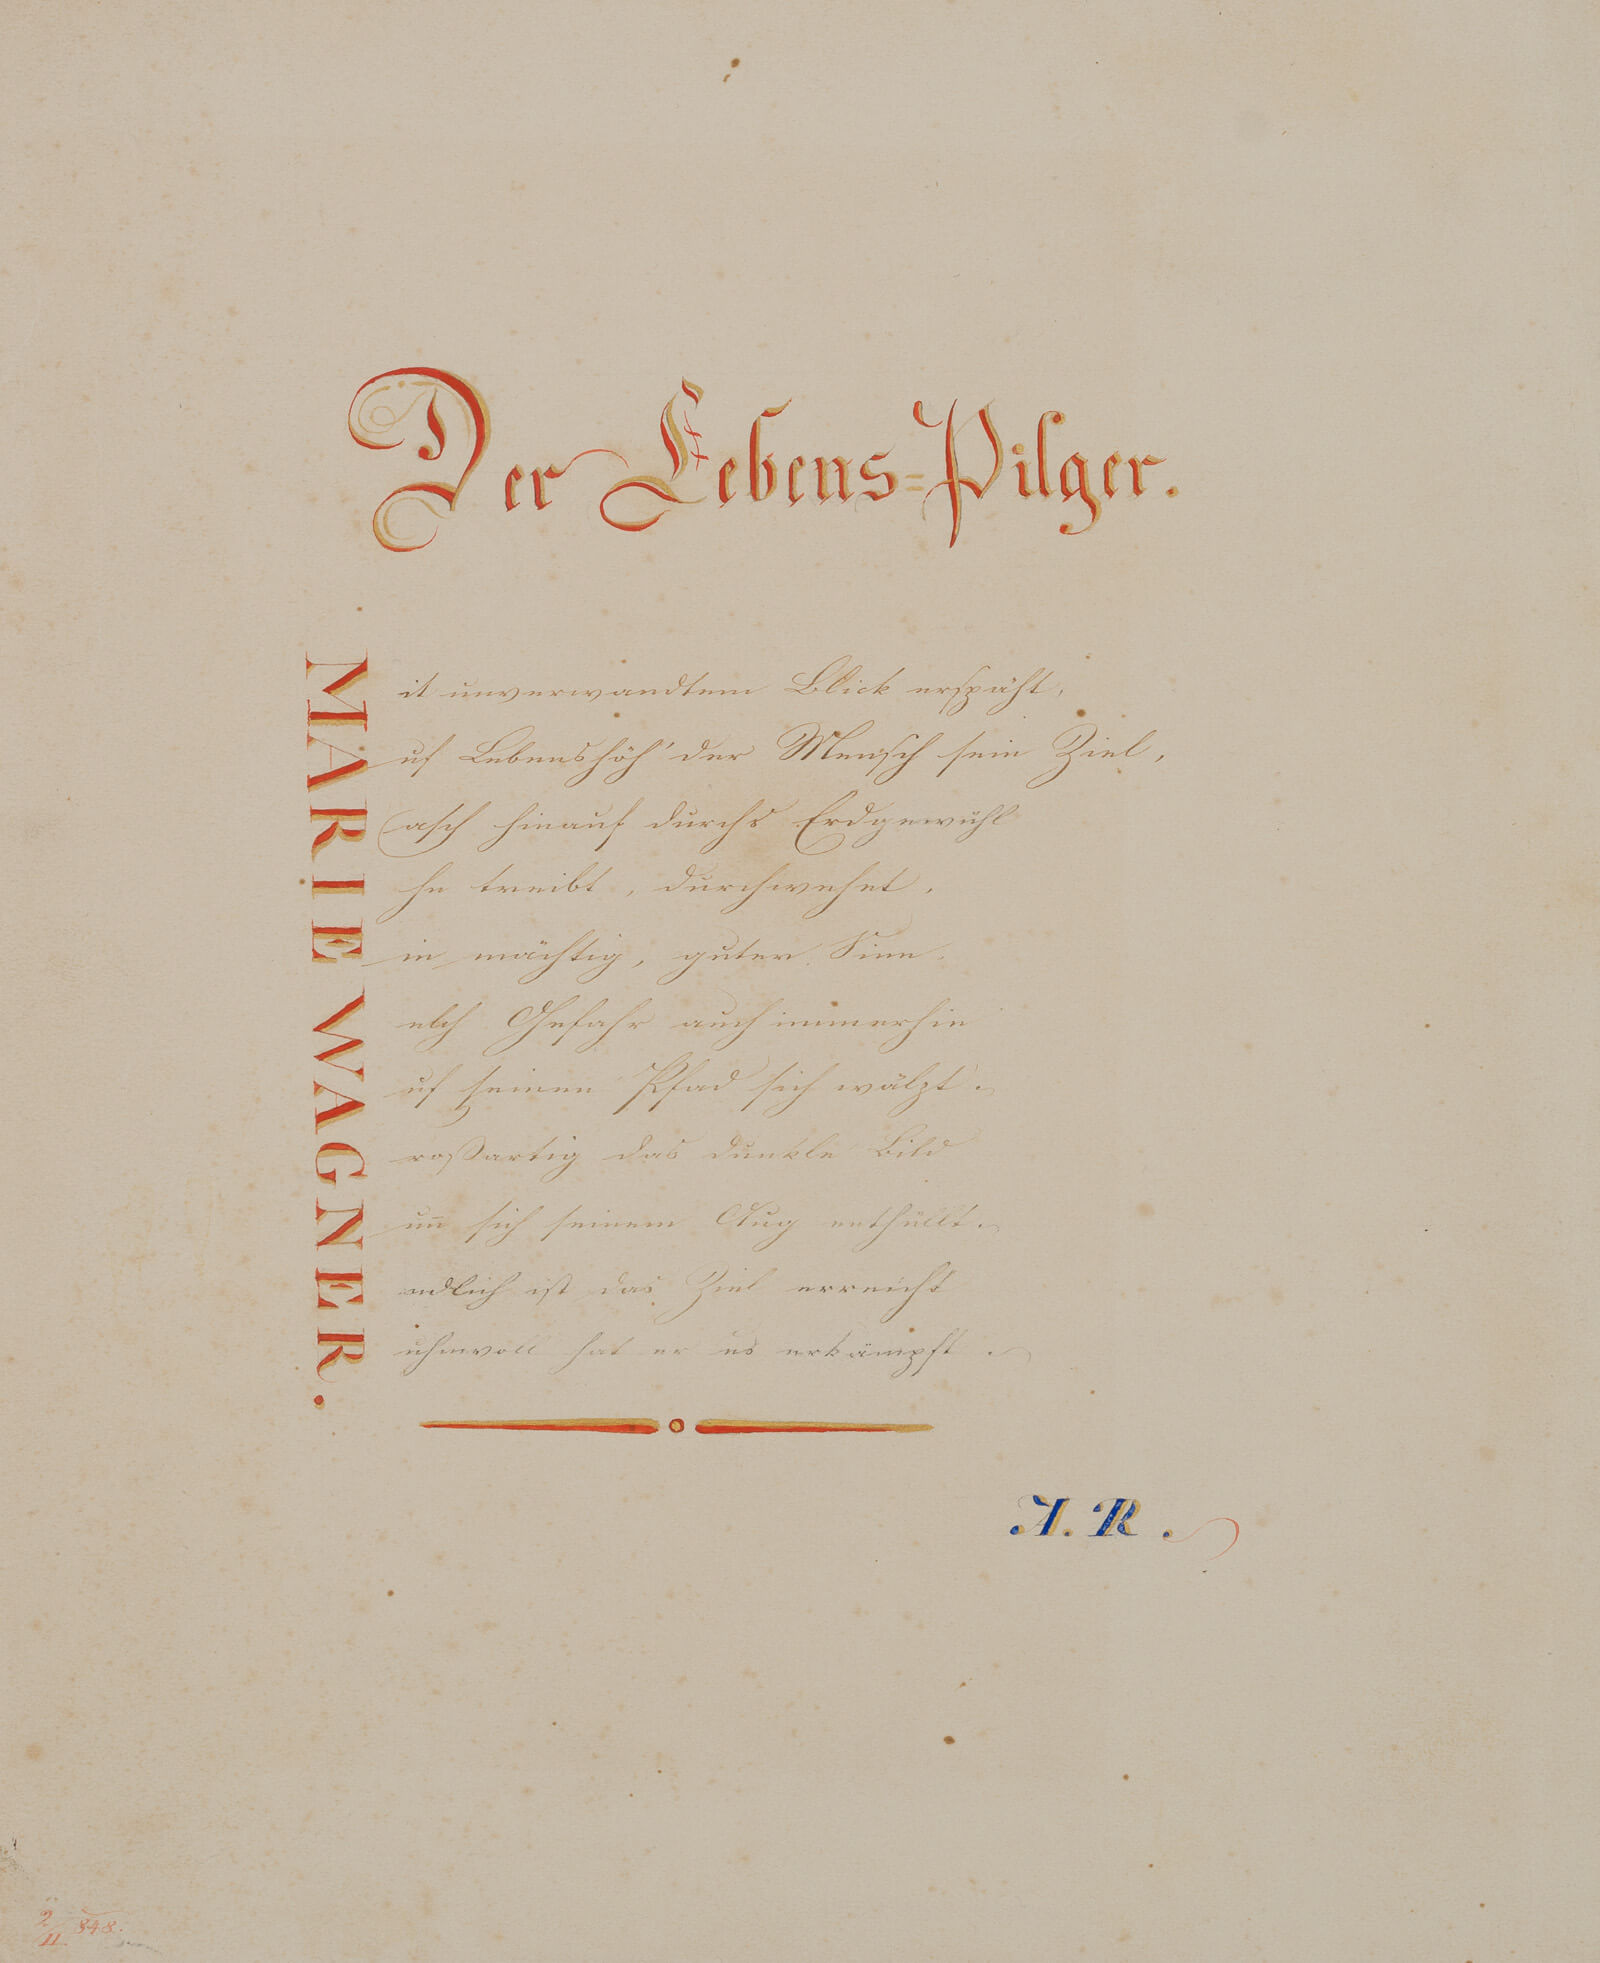 Der Lebens=Pilger.
MARIE WAGNER.
it unverwandtem Blick erspäht,
uf Lebenshöh' der Mensch sein Ziel,
asch hinauf durchs Erdgewühl
hn treibt, durchwehet,
in mächtig, guter Sinn.
elch Gefahr auch immerhin
uf seinen Pfad sich wälzt.
roßartig das dunkle Bild
un sich seinem Aug enthüllt.
ndlich ist das Ziel erreicht
uhmvoll hat er es erkämpft.
A. R.
2/11 848.